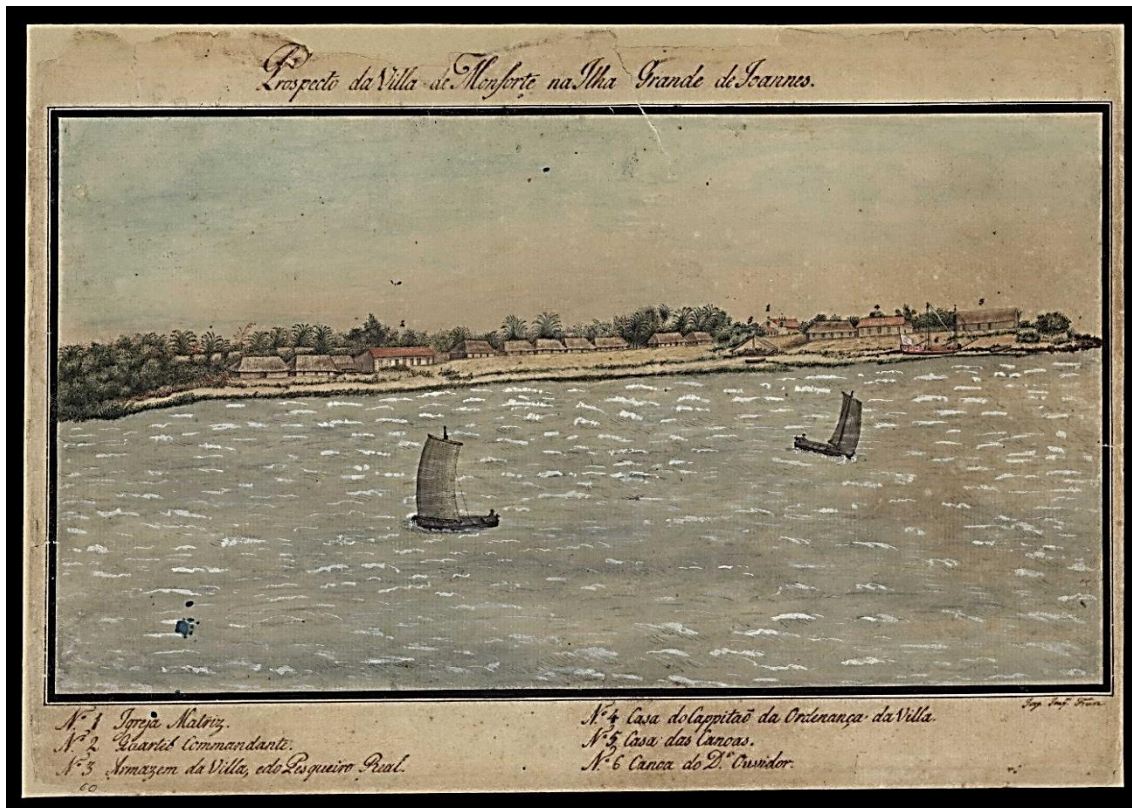 Prospecto da Villa de Monforte na Ilha Grande de Joannes.
Nº 1 Igreja Matriz.
Nº 2 Quartel Commandante.
Nº 3 Armazem da Villa, edo Pesqueiro Real.
Nº 4 Casa do Cappitaõ da Ordenança da Villa.
Nº 5 Casa das Canoas.
Nº 6 Canoa do D.ºʳ Ouvidor.